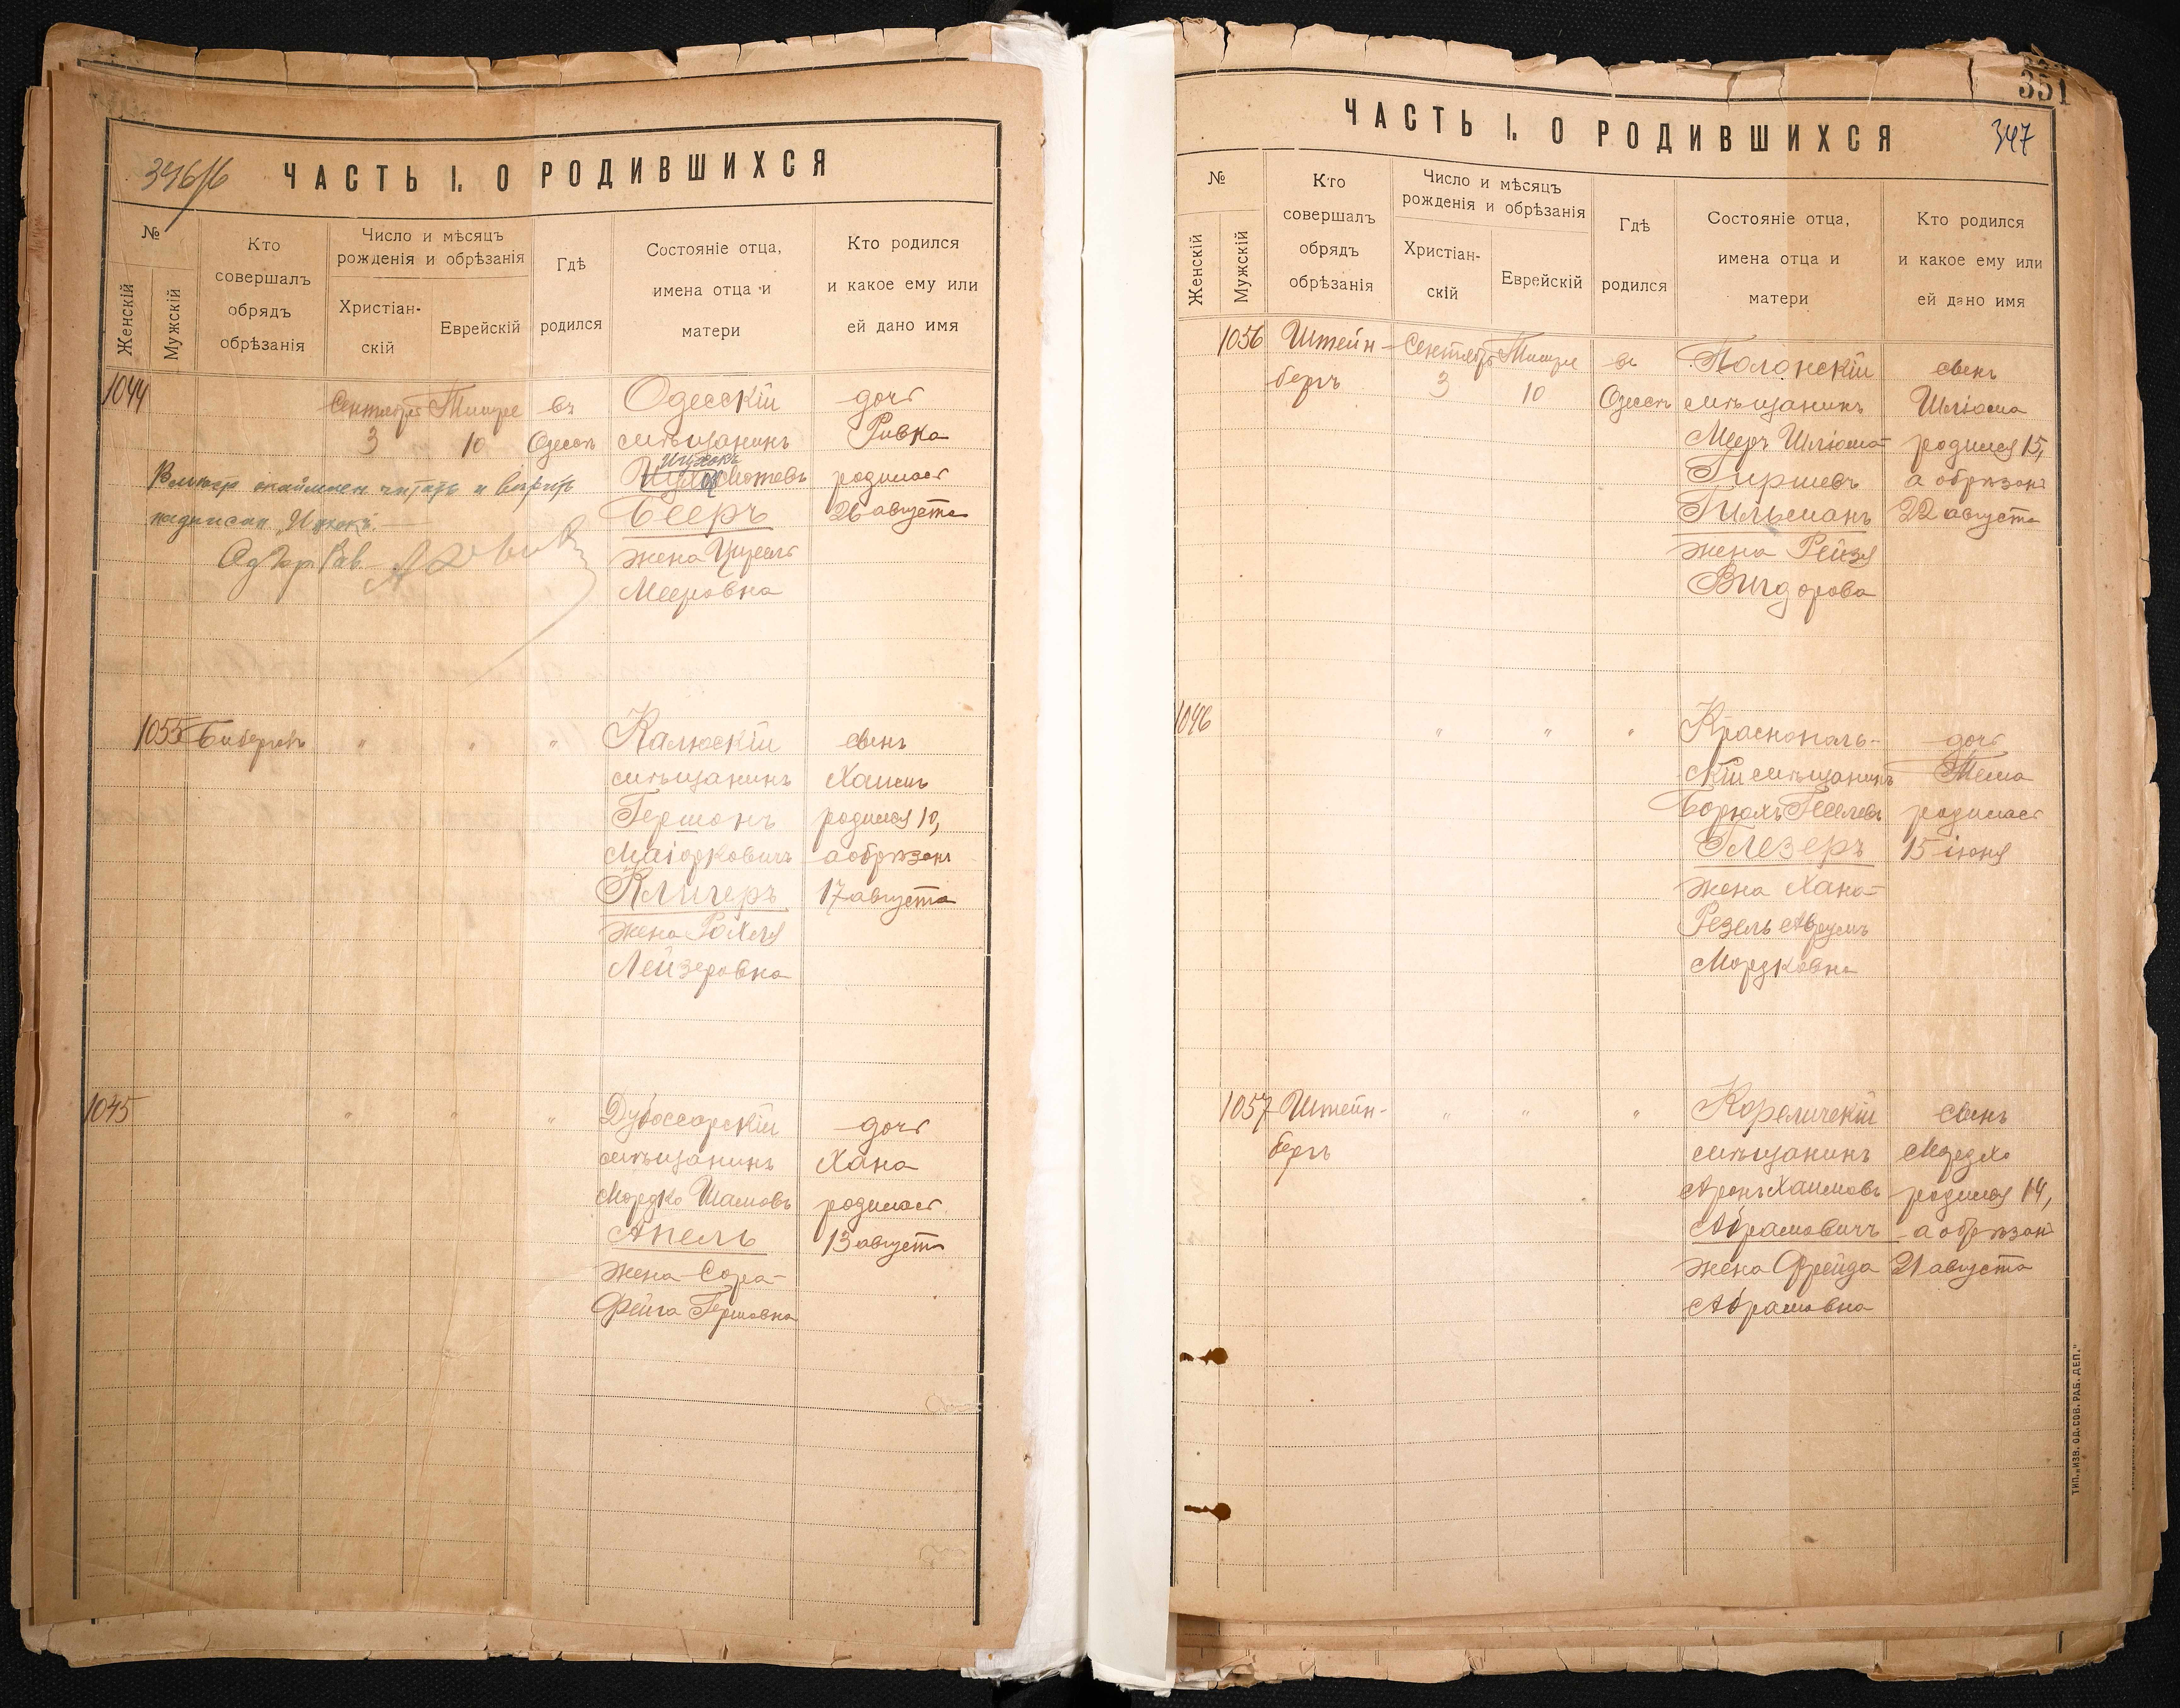 346/б
ЧАСТЬ I. О РОДИВШИХСЯ
№
Женскій
Мужскій
Кто
совершалъ
обрядъ
обрѣзанія
Число и мѣсяцъ
рожденія и обрѣзанія
Христіан-
скій
Еврейскій
Гдѣ
родился
Состояніе отца,
имена отца и
матери
Кто родился
и какое ему или
ей дано имя
1044
Сентября
3
Тишре
10
въ
Одессѣ
Одесскій
мѣщанинъ
Ицхокъ
Мотевъ
Бееръ
жена Цирель
Мееровна
дочь
Ривка
родилась
26 августа
читать и вѣрить
надписан „Ицхокъ"
1055
Биберевъ
"
"
"
Калюскій
мѣщанинъ
Гершонъ
Маіорковичъ
Кличеръ
жена Рохля
Лейзеровна
сынъ
Хаимъ
родился 10,
а обрѣзанъ
17 августа
1045
"
"
"
Дубоссарскій
мѣщанинъ
Мордко Шамовъ
Апель
жена Сора-
Фейга Гершовна
дочь
Хана
родилась
13 августа
351
347
ЧАСТЬ I. О РОДИВШИХСЯ
№
Женскій
Мужскій
Кто
совершалъ
обрядъ
обрѣзанія
Число и мѣсяцъ
рожденія и обрѣзанія
Христіан-
скій
Еврейскій
Гдѣ
родился
Состояніе отца,
имена отца и
матери
Кто родился
и какое ему или
ей дано имя
1056
Штейн-
бергъ
Сентября
3
Тишре
10
въ
Одессѣ
Полонскій
мѣщанинъ
Мееръ Шліома-
Гиршевъ
Гильманъ
жена Рейзя
Вигдорова
сынъ
Шліома
родился 15,
а обрѣзанъ
22 августа
1046
"
"
"
Краснополь-
скій мѣщанинъ
Борюхъ
Глезеръ
жена Хана-
Резель Аврумъ
Мордковна
дочь
родилась
15 іюня
1057
Штейн-
бергъ
"
"
"
Кореличскій
мѣщанинъ
Аронъ Хаимовъ
Абрамовичъ
жена Фрейда
Абрамовна
сынъ
Мордхо
родился 14,
а обрѣзанъ
21 августа
ТИП. „ИЗВ. ОД. СОВ. РАБ. ДЕП."